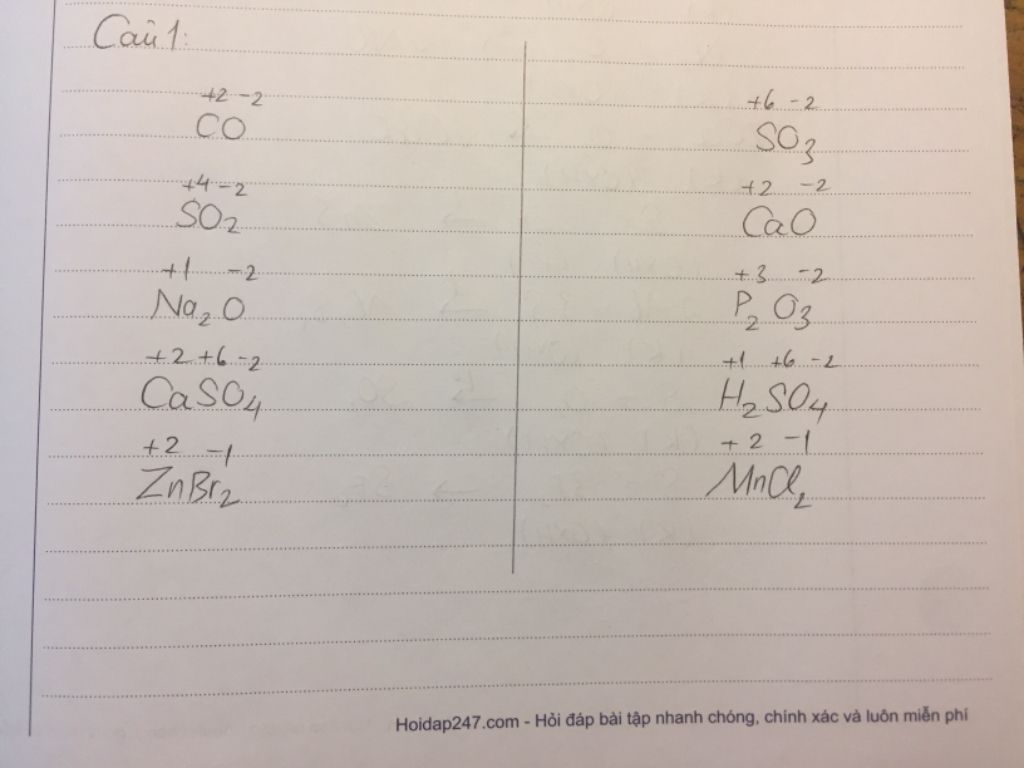 Câu 1:
+2 -2
CO
+4 -2
SO2
+1 -2
Na2O
+2 +6 -2
CaSO4
+2 -1
ZnBr2
+6 -2
SO3
+2 -2
CaO
+3 -2
P2O3
+1 +6 -2
H2SO4
+2 -1
MnCl2
Hoidap247.com - Hỏi đáp bài tập nhanh chóng, chính xác và luôn miễn phí